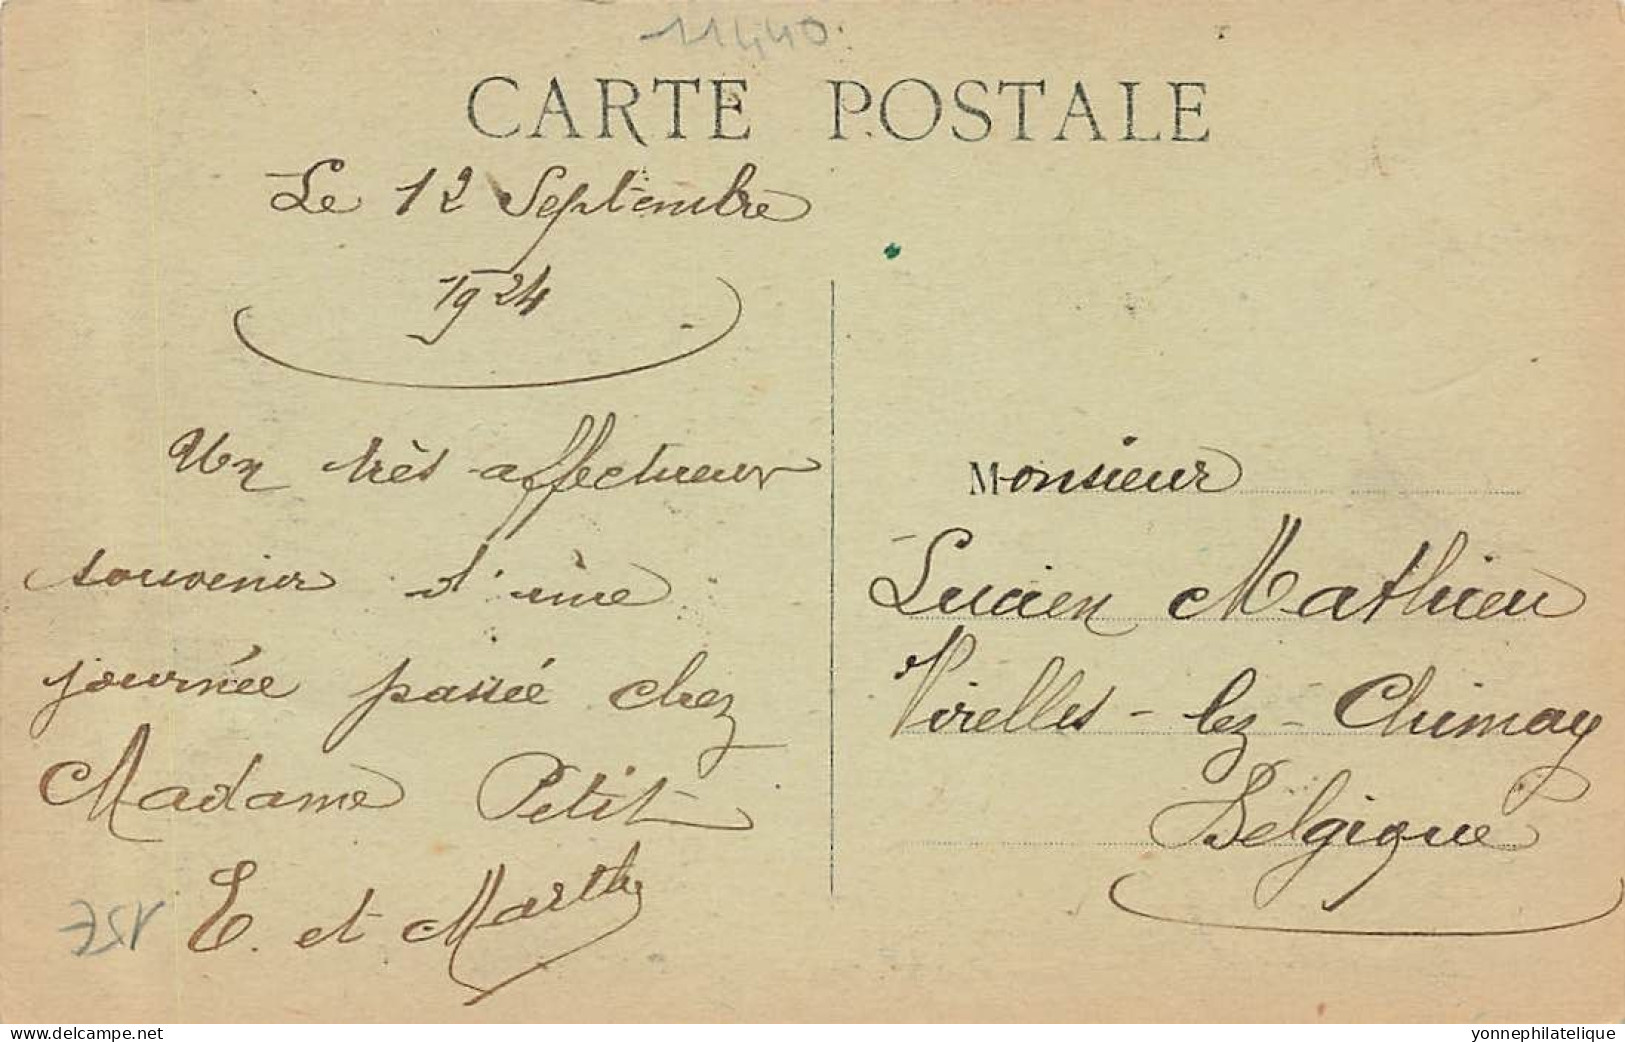 11440
CARTE POSTALE
Le 12 Septembre
1924
Un très affectueux
souvenir d'une
journée passée chez
Madame Petit
E. et Marthe
Monsieur
Lucien Mathieu
Virelles-lez-Chimay
Belgique
www.delcampe.net
yonnephilatelique